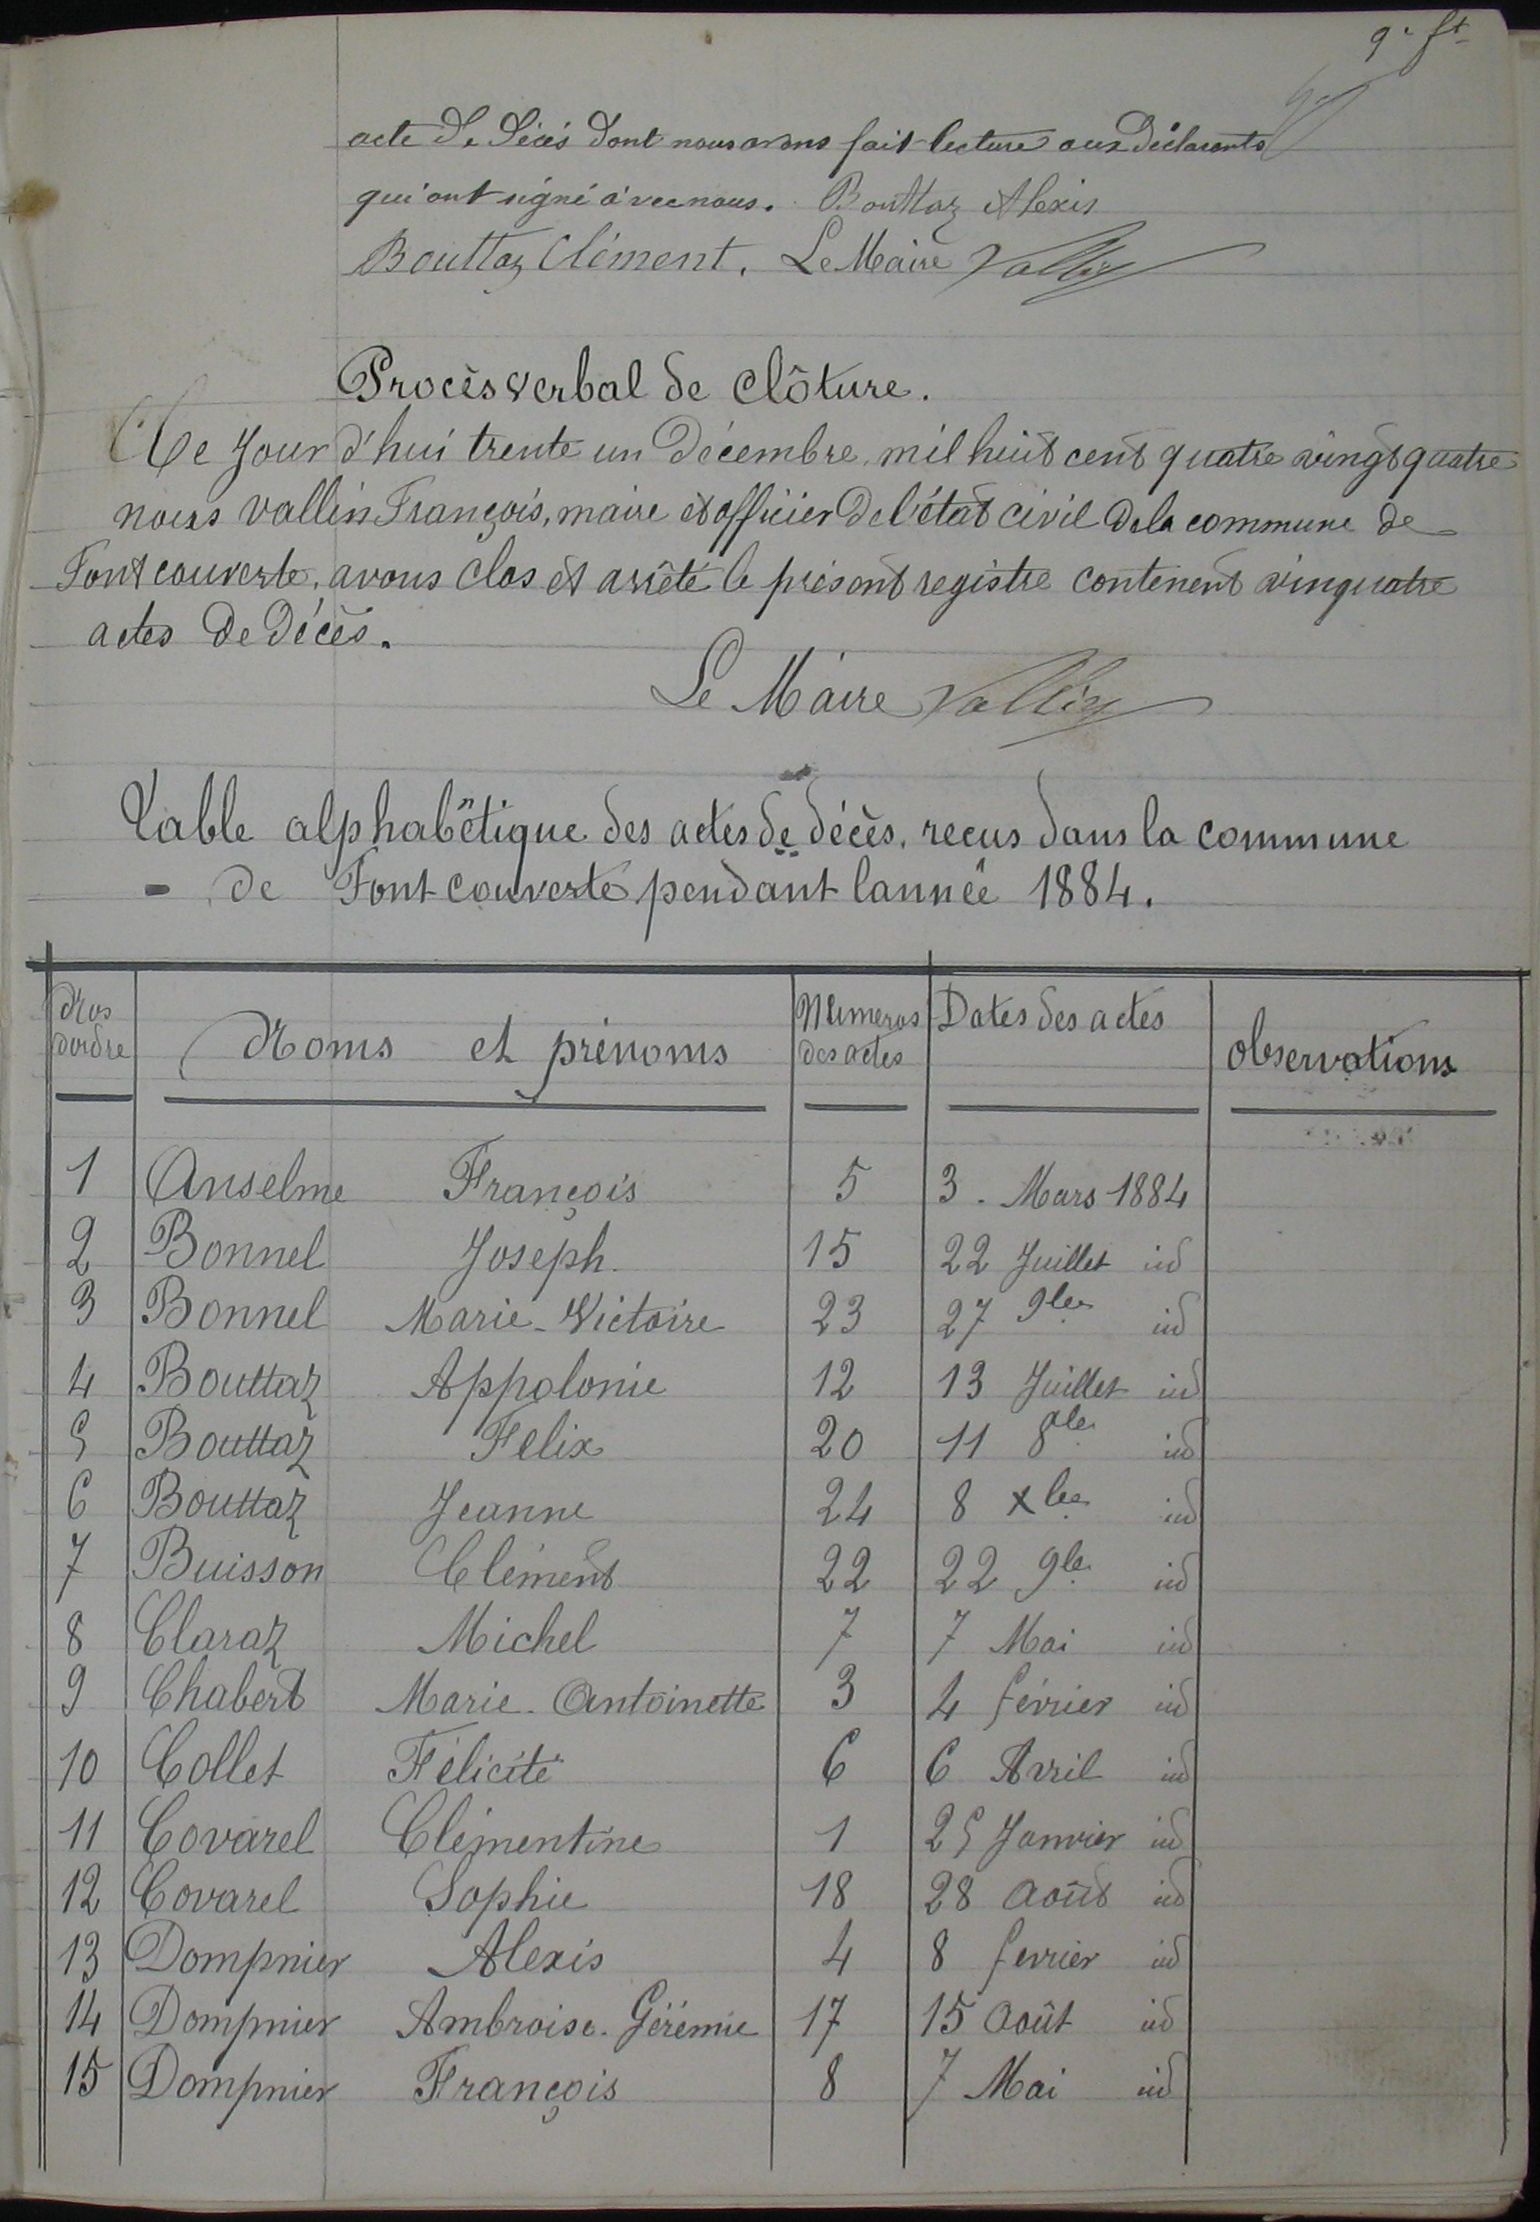 9e ft
acte de décès dont nous avons fait lecture aux déclarants
qui ont signé avec nous. Bouttaz Alexis
Bouttaz Clément. Le Maire Vallin
Procès verbal de clôture.
Ce jour d'hui trente un Décembre, mil huit cent quatre vingt quatre
nous Vallin François, maire et officier de l'état civil de la commune de
Fontcouverte, avons clos et arrêté le présent registre contenent vinquatre
actes de décès.
Le Maire Vallin
Table alphabêtique des actes de décès, recus dans la commune
- de Fontcouverte pendant lannée 1884.
Nos dordre | Noms et prénoms | Numeros des actes | Dates des actes | observations
1 Anselme François 5 3. Mars 1884
2 Bonnel Joseph. 15 22 Juillet id
3 Bonnel Marie-Victoire 23 27 9bre id
4 Bouttaz Appolonie 12 13 Juillet id
5 Bouttaz Felix 20 11 8bre id
6 Bouttaz Jeanne 24 8 xbre id
7 Buisson Clément 22 22 9bre id
8 Claraz Michel 7 7 Mai id
9 Chabert Marie-Antoinette 3 4 février id
10 Collet Félicité 6 6 Avril id
11 Covarel Clémentine 1 25 Janvier id
12 Covarel Sophie 18 28 Août id
13 Dompnier Alexis 4 8 fevrier id
14 Dompnier Ambroise-Gérémie 17 15 Août id
15 Dompnier François 8 7 Mai id